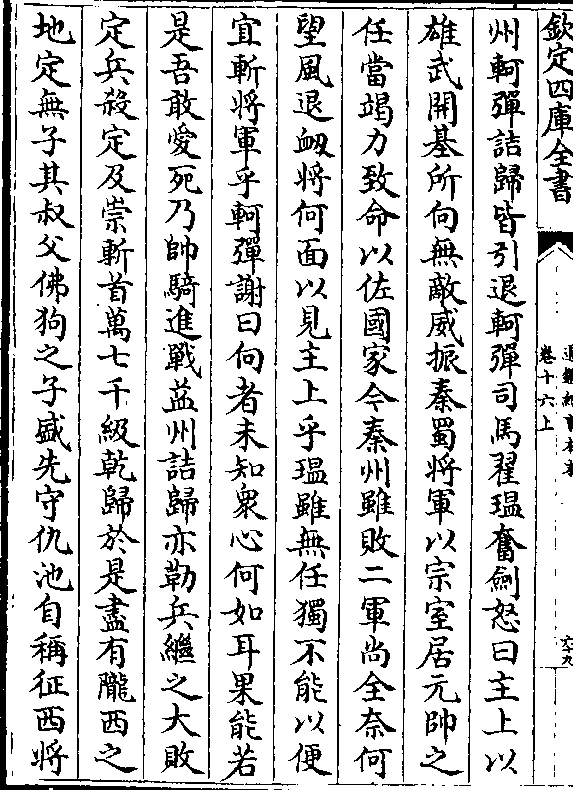 欽定四庫全書
通鑑紀事本末
卷十六上
六十九
州軻彈詰歸皆引退軻彈司馬翟瑥奮劍怒曰主上以
雄武開基所向無敵威振秦蜀將軍以宗室居元帥之
任當竭力致命以佐國家今秦州雖敗二軍尚全奈何
望風退衂將何面以見主上乎瑥雖無任獨不能以便
宜斬將軍乎軻彈謝曰向者未知衆心何如耳果能若
是吾敢愛死乃帥騎進戰益州詰歸亦勒兵繼之大敗
定兵殺定及崇斬首萬七千級乾歸於是盡有隴西之
地定無子其叔父佛狗之子盛先守仇池自稱征西將